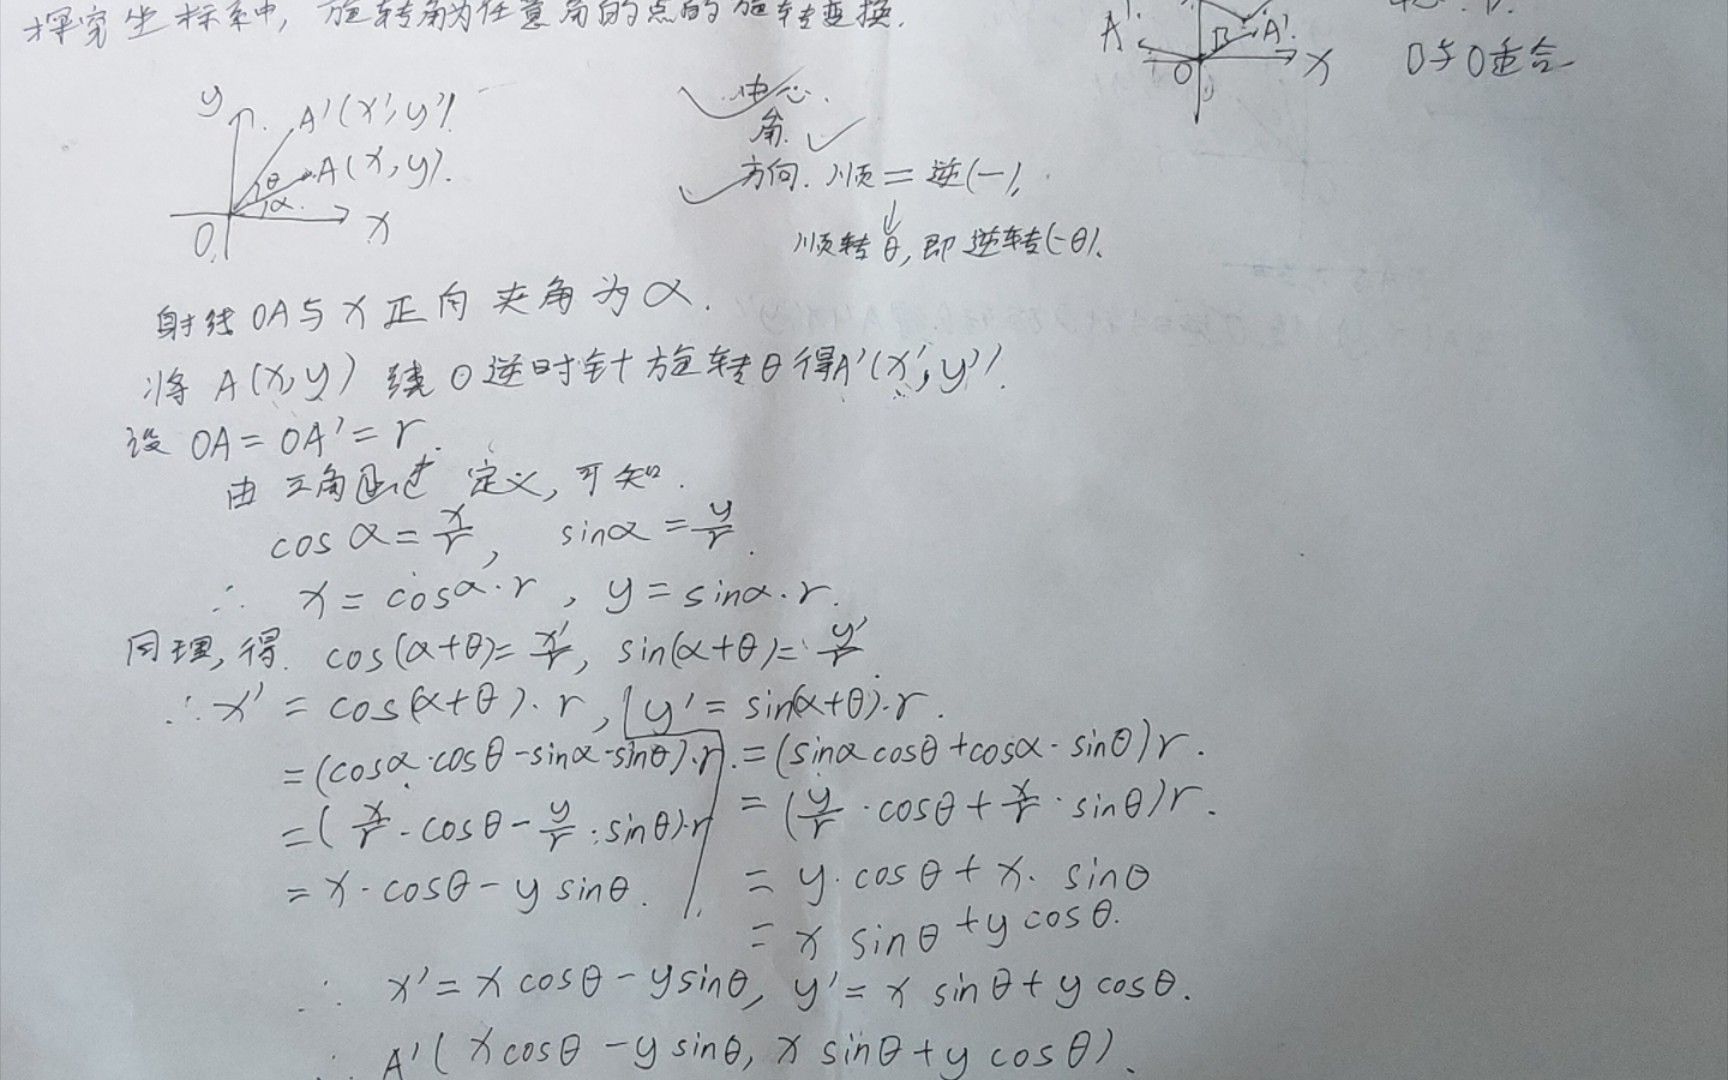 探究坐标系中, 旋转角为任意角的点的旋转变换.
A'
B
A'.
O
x
O与O重合
y
A'(x',y').
θ
A(x,y).
α.
O
x
中心.
角.
方向. 顺=逆(-),
顺转θ,即逆转(-θ).
射线OA与x正向夹角为α.
将A(x,y)绕O逆时针旋转θ得A'(x',y').
设 OA=OA'=r.
由三角函数定义,可知.
cosα=x/r, sinα=y/r.
∴ x=cosα·r, y=sinα·r.
同理,得. cos(α+θ)=x'/r, sin(α+θ)=y'/r
∴x'=cos(α+θ)·r, y'=sin(α+θ)·r.
=(cosα·cosθ-sinα·sinθ)·r. =(sinαcosθ+cosα·sinθ)r.
=(x/r·cosθ-y/r·sinθ)·r =(y/r·cosθ+x/r·sinθ)r.
=x·cosθ-ysinθ. =y·cosθ+x·sinθ
=x sinθ+ycosθ.
∴ x'=xcosθ-ysinθ, y'=x sinθ+y cosθ.
∴ A'(xcosθ-ysinθ, x sinθ+y cosθ).